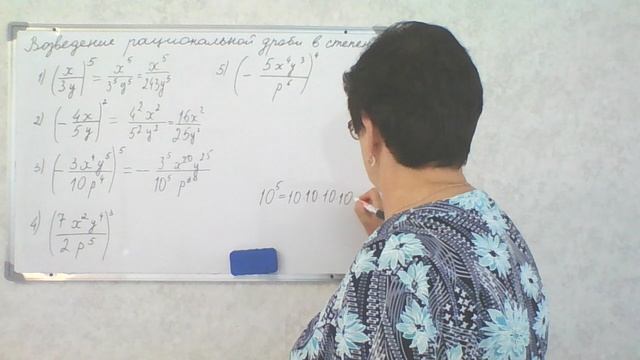 Возведение рациональной дроби в степень
1) (x/3y)^5 = x^5/3^5y^5 = x^5/243y^5
2) (-4x/5y)^2 = 4^2x^2/5^2y^2 = 16x^2/25y^2
3) (-3x^4y^5/10p^4)^5 = -3^5x^20y^25/10^5p^20
4) (7x^2y^4/2p^5)^3
5) (-5x^4y^3/p^6)^4
10^5=10·10·10·10